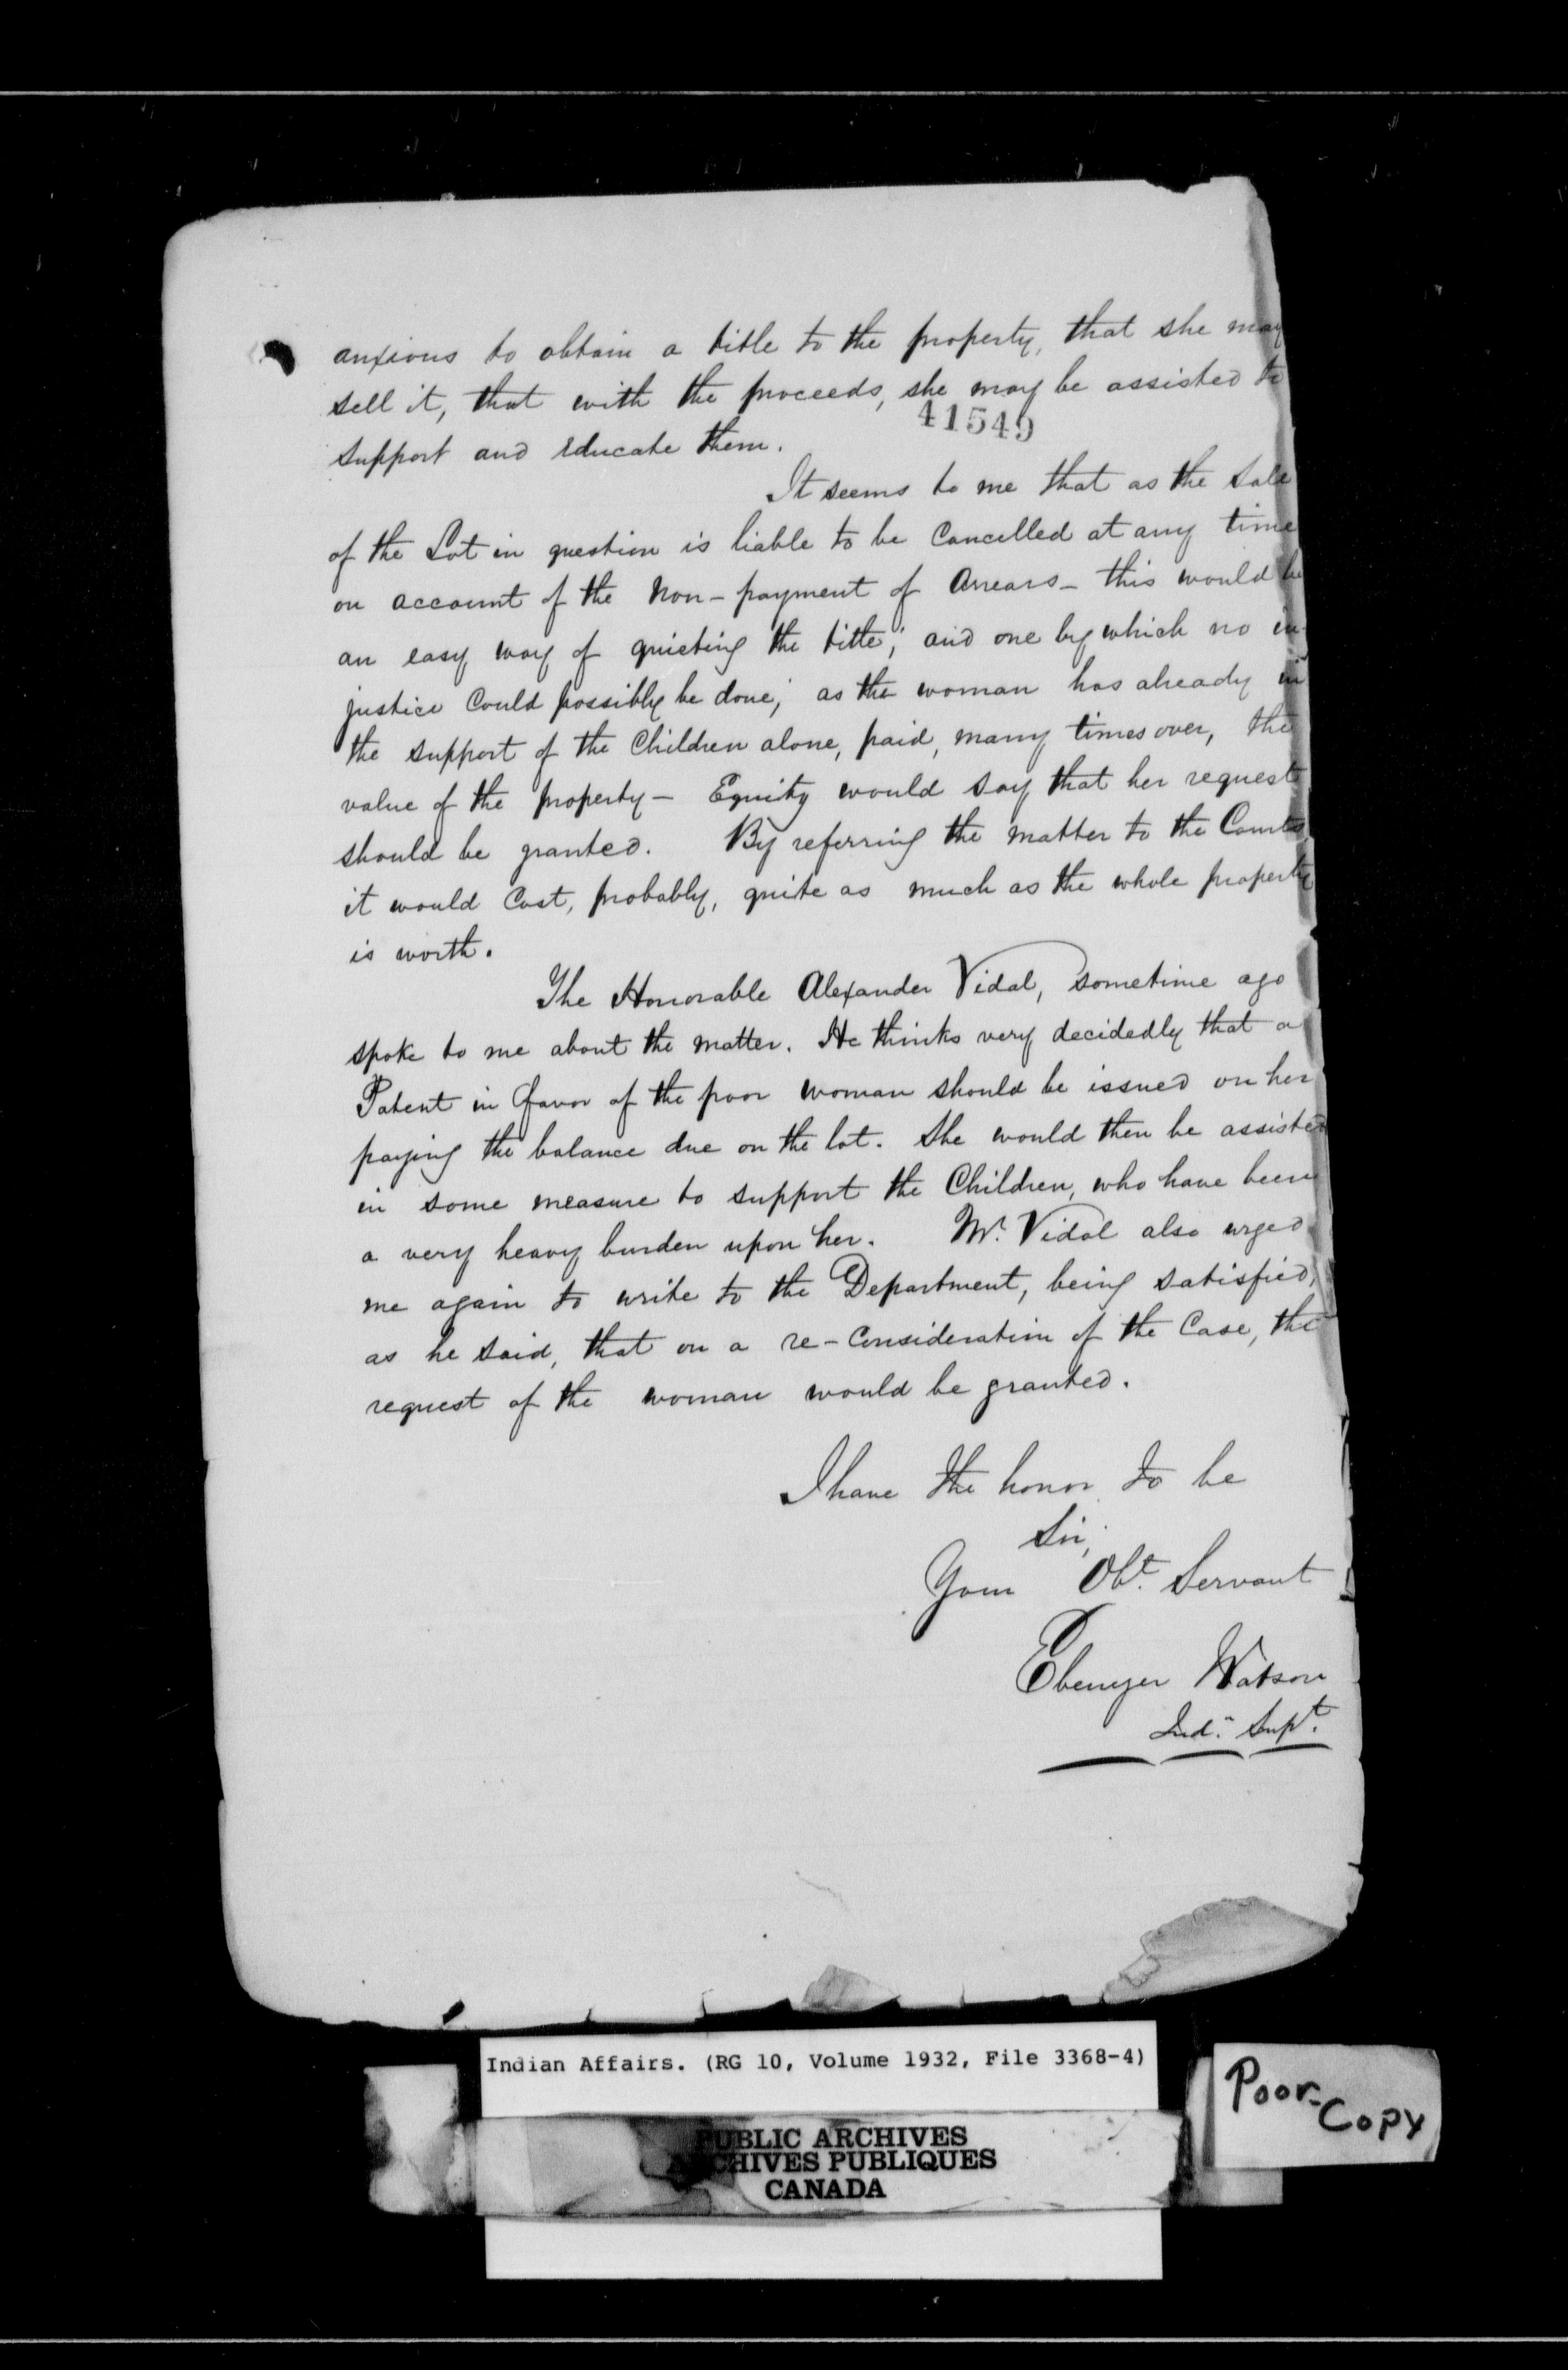 anxious to obtain a title to the property, that she may
sell it, that with the proceeds, she may be assisted to
41549
support and educate them.
It seems to me that as the Sale
of the Lot in question is liable to be Cancelled at any time
on account of the Non-payment of Arrears - this would be
an easy way of quieting the title; and one by which no in-
justice Could possibly be done; as the woman has already in
the support of the Children alone, paid, many times over, the
value of the property - Equity would say that her request
should be granted. By referring the matter to the Courts
it would Cost, probably, quite as much as the whole property
is worth.
The Honorable Alexander Vidal, sometime ago
spoke to me about the matter. He thinks very decidedly that a
Patent in favor of the poor woman should be issued on her
paying the balance due on the lot. She would then be assisted
in some measure to support the Children, who have been
a very heavy burden upon her. Mr. Vidal also urged
me again to write to the Department, being satisfied,
as he said, that on a re-Consideration of the Case, the
request of the woman would be granted.
I have the honor to be
Sir,
Your Obt. Servant
Ebenezer Watson
Ind. Supt.
Indian Affairs. (RG 10, Volume 1932, File 3368-4)
PUBLIC ARCHIVES
ARCHIVES PUBLIQUES
CANADA
Poor-
Copy